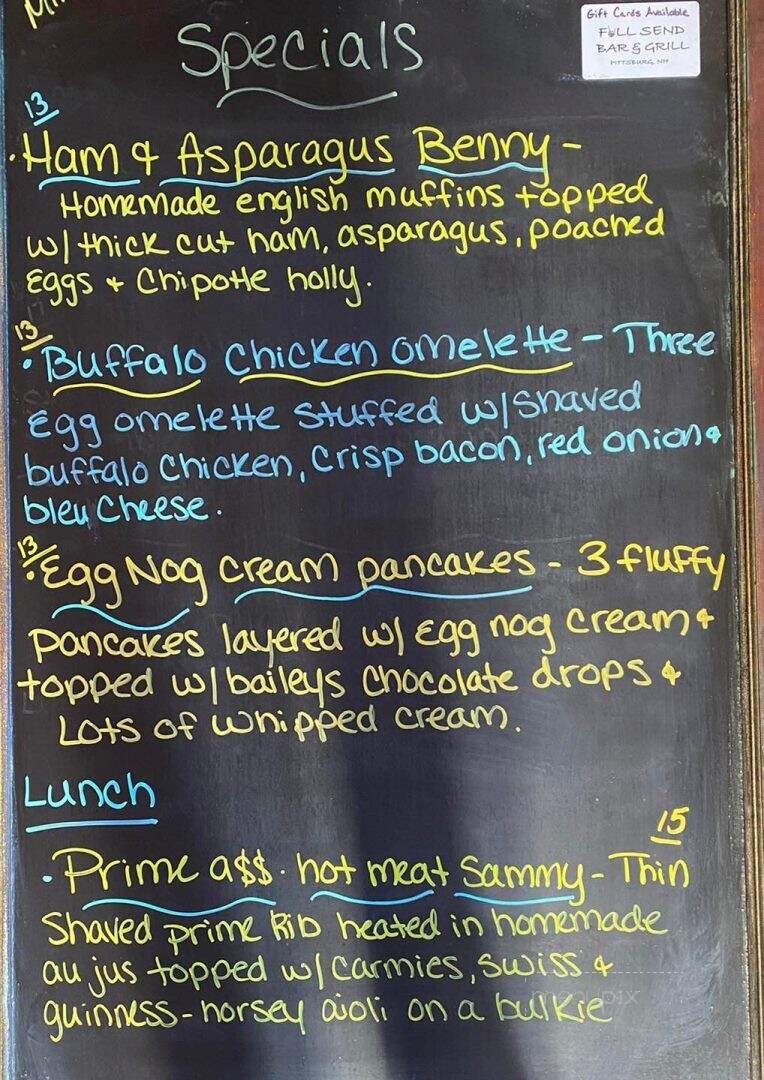 Specials
Gift Cards Available
FULL SEND
BAR & GRILL
PITTSBURG, NH
13
· Ham & Asparagus Benny -
Homemade english muffins topped
w/ thick cut ham, asparagus, poached
Eggs + Chipotle holly.
13
· Buffalo Chicken omelette - Three
Egg omelette stuffed w/ shaved
buffalo chicken, crisp bacon, red onion &
bleu cheese.
13
· Egg Nog cream pancakes - 3 fluffy
pancakes layered w/ Egg nog cream &
topped w/ baileys chocolate drops &
Lots of whipped cream.
Lunch
15
· Prime a$$ · hot meat Sammy - Thin
Shaved prime Rib heated in homemade
au jus topped w/ carmies, swiss &
guinness - horsey aioli on a bulkie